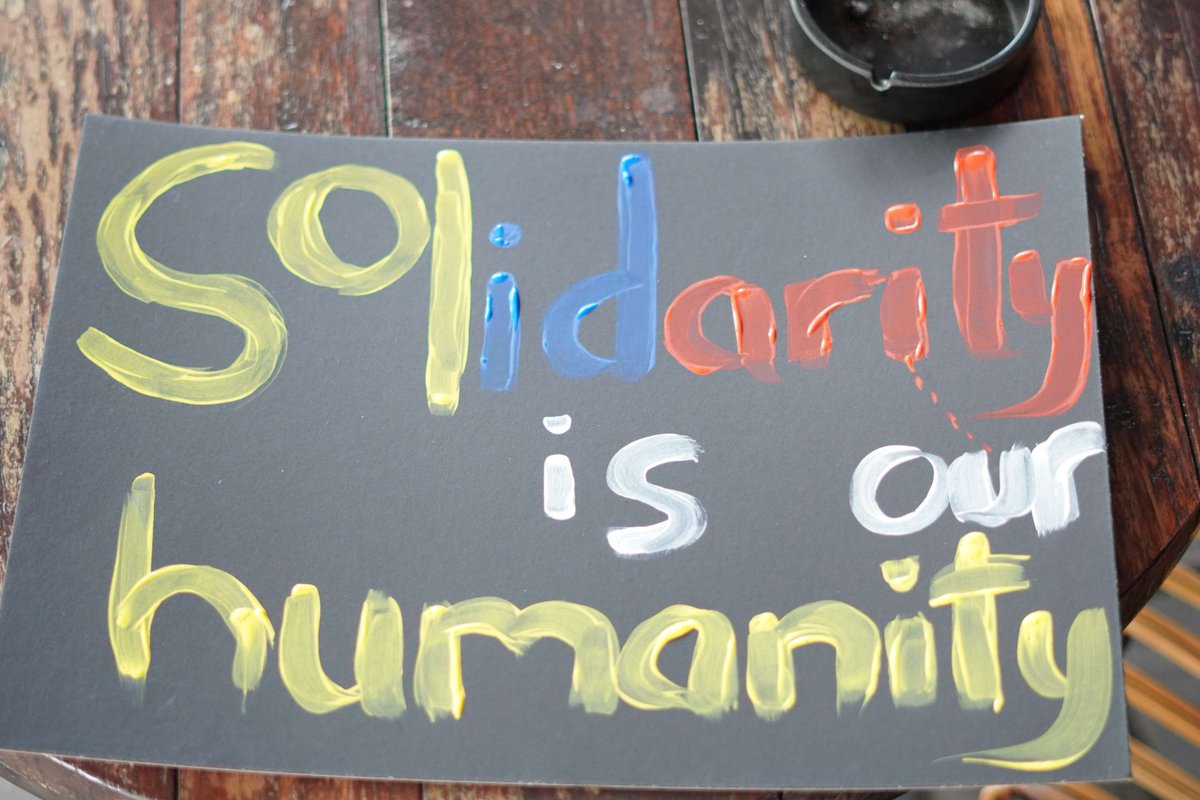 Solidarity
is our
humanity